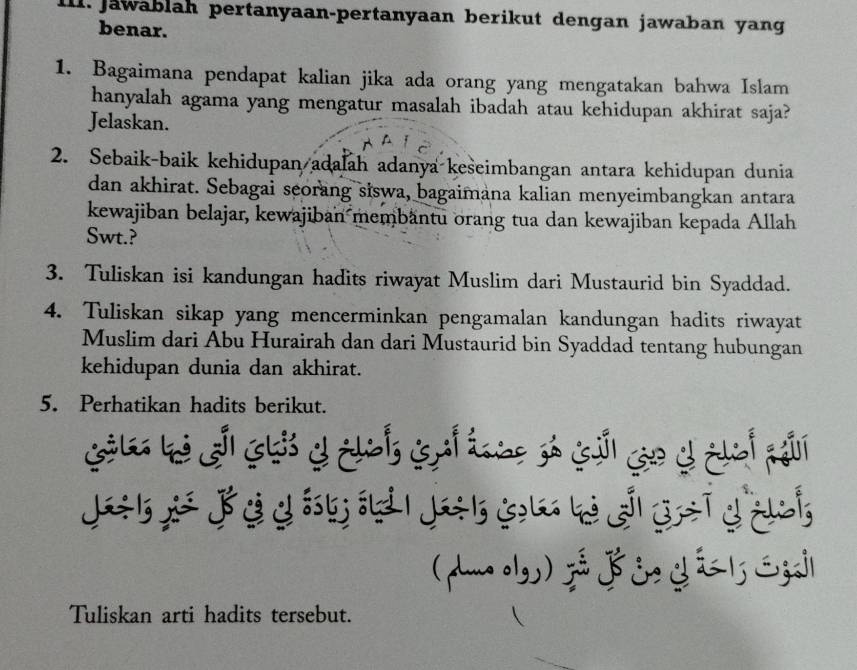 III. Jawablah pertanyaan-pertanyaan berikut dengan jawaban yang
benar.
1. Bagaimana pendapat kalian jika ada orang yang mengatakan bahwa Islam
hanyalah agama yang mengatur masalah ibadah atau kehidupan akhirat saja?
Jelaskan.
2. Sebaik-baik kehidupan adalah adanya keseimbangan antara kehidupan dunia
dan akhirat. Sebagai seorang siswa, bagaimana kalian menyeimbangkan antara
kewajiban belajar, kewajiban membantu orang tua dan kewajiban kepada Allah
Swt.?
3. Tuliskan isi kandungan hadits riwayat Muslim dari Mustaurid bin Syaddad.
4. Tuliskan sikap yang mencerminkan pengamalan kandungan hadits riwayat
Muslim dari Abu Hurairah dan dari Mustaurid bin Syaddad tentang hubungan
kehidupan dunia dan akhirat.
5. Perhatikan hadits berikut.
اَللّٰهُمَّ أَصْلِحْ لِيْ دِيْنِي الَّذِيْ هُوَ عِصْمَةُ أَمْرِيْ وَأَصْلِحْ لِيْ دُنْيَايَ الَّتِيْ فِيْهَا مَعَاشِيْ
وَأَصْلِحْ لِيْ آخِرَتِيْ الَّتِيْ فِيْهَا مَعَادِيْ وَاجْعَلْ الْحَيَاةَ زِيَادَةً لِيْ فِيْ كُلِّ خَيْرٍ وَاجْعَلْ
الْمَوْتَ رَاحَةً لِيْ مِنْ كُلِّ شَرٍّ (رواه مسلم)
Tuliskan arti hadits tersebut.